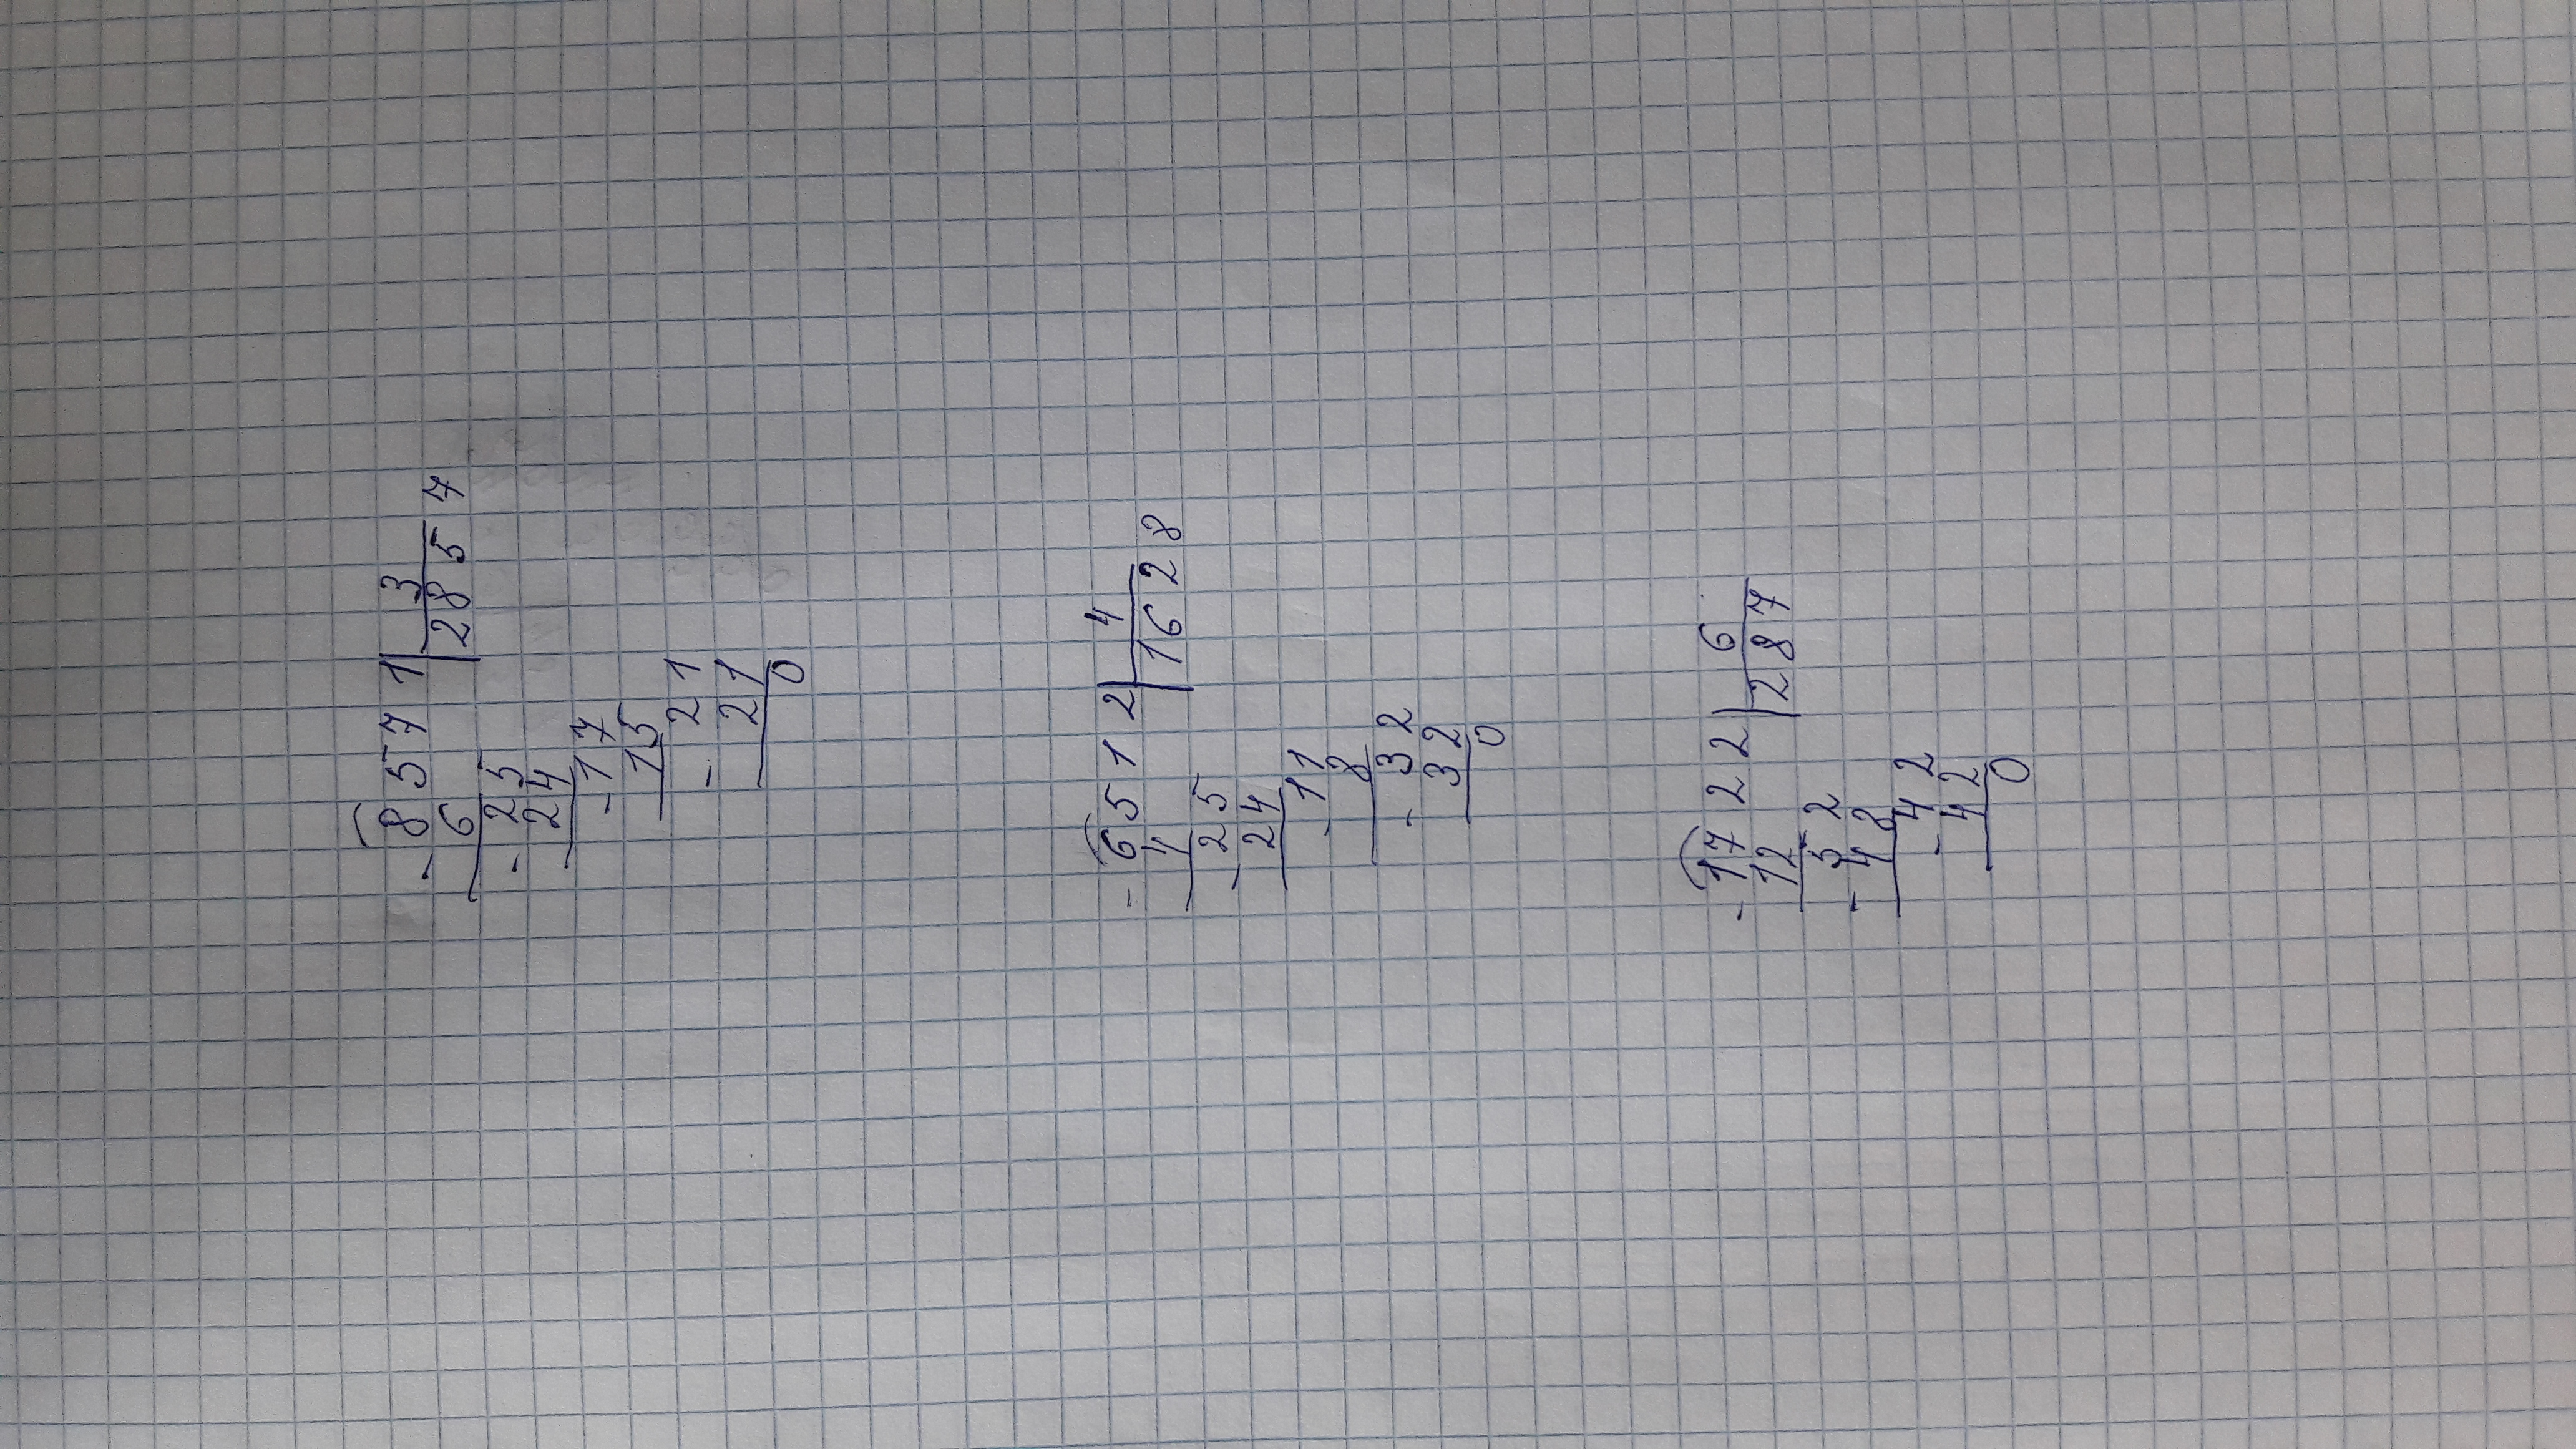 - 8571 | 3
6 | 2857
- 25
24
- 17
15
- 21
21
0
- 6512 | 4
4 | 1628
- 25
24
- 11
8
- 32
32
0
- 1722 | 6
12 | 287
- 52
48
- 42
42
0